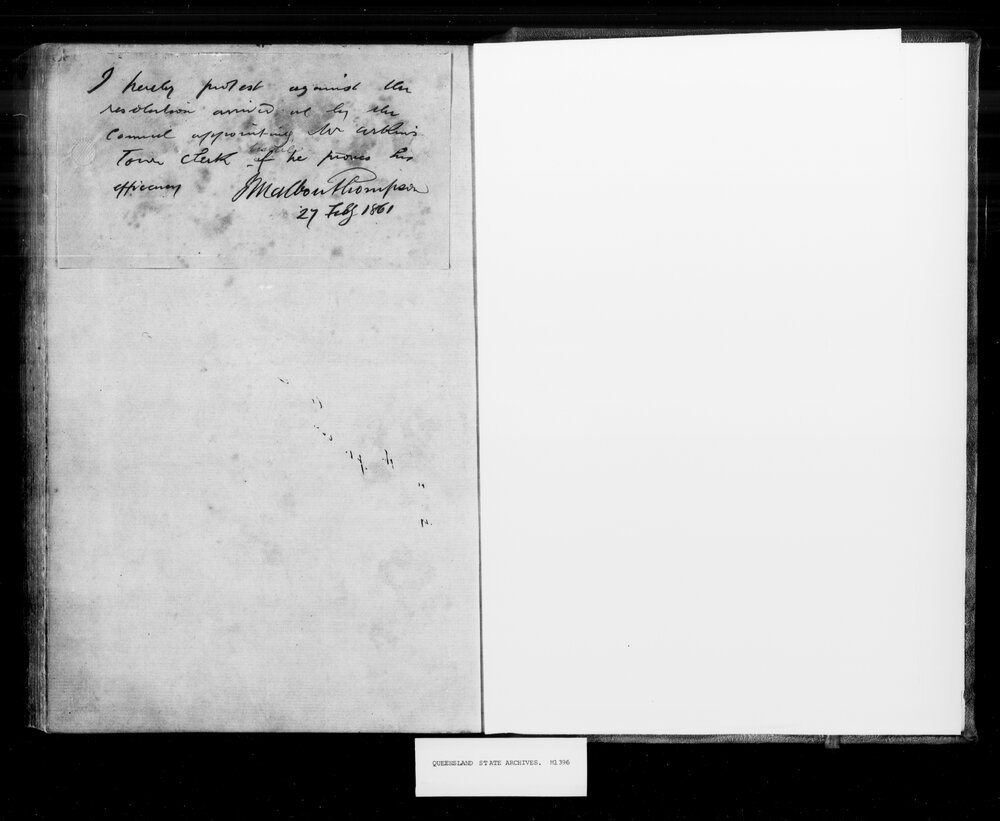 I hereby protest against the
resolution arrived at by the
Council appointing Mr
Town Clerk he proves his
efficiency J Malbon Thompson
27 Feby 1861
QUEENSLAND STATE ARCHIVES. M1396